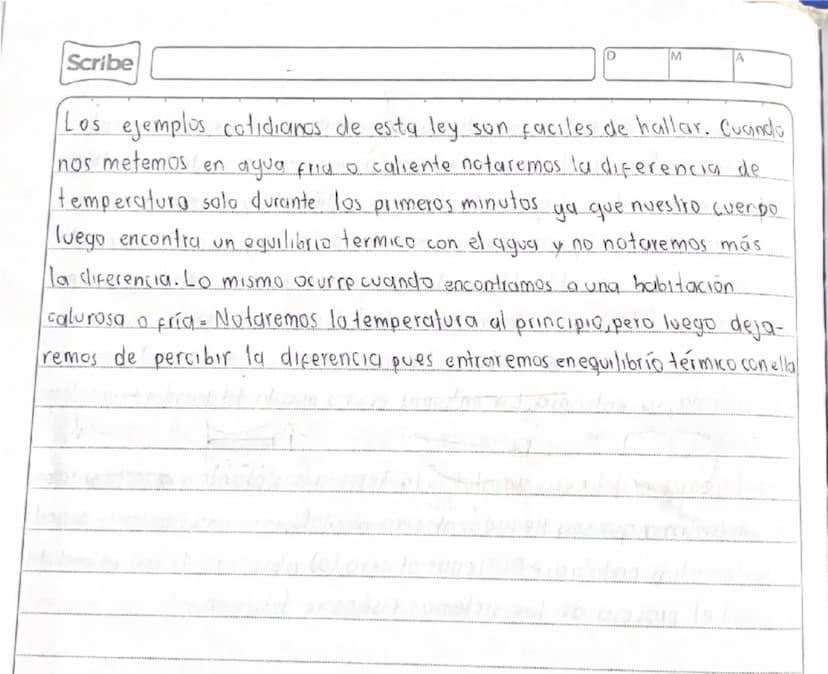 Scribe
D M A
Los ejemplos cotidianos de esta ley son faciles de hallar. Cuando
nos metemos en agua fria o caliente notaremos la diferencia de
temperatura solo durante los primeros minutos ya que nuestro cuerpo
luego encontra un equilibrio termico con el agua y no notaremos más
la diferencia. Lo mismo ocurre cuando encontramos a una habitación
calurosa o fría = Notaremos la temperatura al principio, pero luego deja-
remos de percibir la diferencia pues entraremos en equilibrío térmico con ella